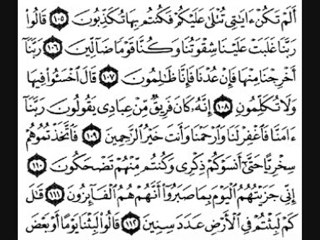 أَلَمْ تَكُنْ ءَايَٰتِى تُتْلَىٰ عَلَيْكُمْ فَكُنتُم بِهَا تُكَذِّبُونَ ١٠٥ قَالُوا۟
رَبَّنَا غَلَبَتْ عَلَيْنَا شِقْوَتُنَا وَكُنَّا قَوْمًا ضَآلِّينَ ١٠٦ رَبَّنَآ
أَخْرِجْنَا مِنْهَا فَإِنْ عُدْنَا فَإِنَّا ظَٰلِمُونَ ١٠٧ قَالَ ٱخْسَـُٔوا۟ فِيهَا
وَلَا تُكَلِّمُونِ ١٠٨ إِنَّهُۥ كَانَ فَرِيقٌ مِّنْ عِبَادِى يَقُولُونَ رَبَّنَآ
ءَامَنَّا فَٱغْفِرْ لَنَا وَٱرْحَمْنَا وَأَنتَ خَيْرُ ٱلرَّٰحِمِينَ ١٠٩ فَٱتَّخَذْتُمُوهُمْ
سِخْرِيًّا حَتَّىٰٓ أَنسَوْكُمْ ذِكْرِى وَكُنتُم مِّنْهُمْ تَضْحَكُونَ ١١٠
إِنِّى جَزَيْتُهُمُ ٱلْيَوْمَ بِمَا صَبَرُوٓا۟ أَنَّهُمْ هُمُ ٱلْفَآئِزُونَ ١١١ قَٰلَ
كَمْ لَبِثْتُمْ فِى ٱلْأَرْضِ عَدَدَ سِنِينَ ١١٢ قَالُوا۟ لَبِثْنَا يَوْمًا أَوْ بَعْضَ